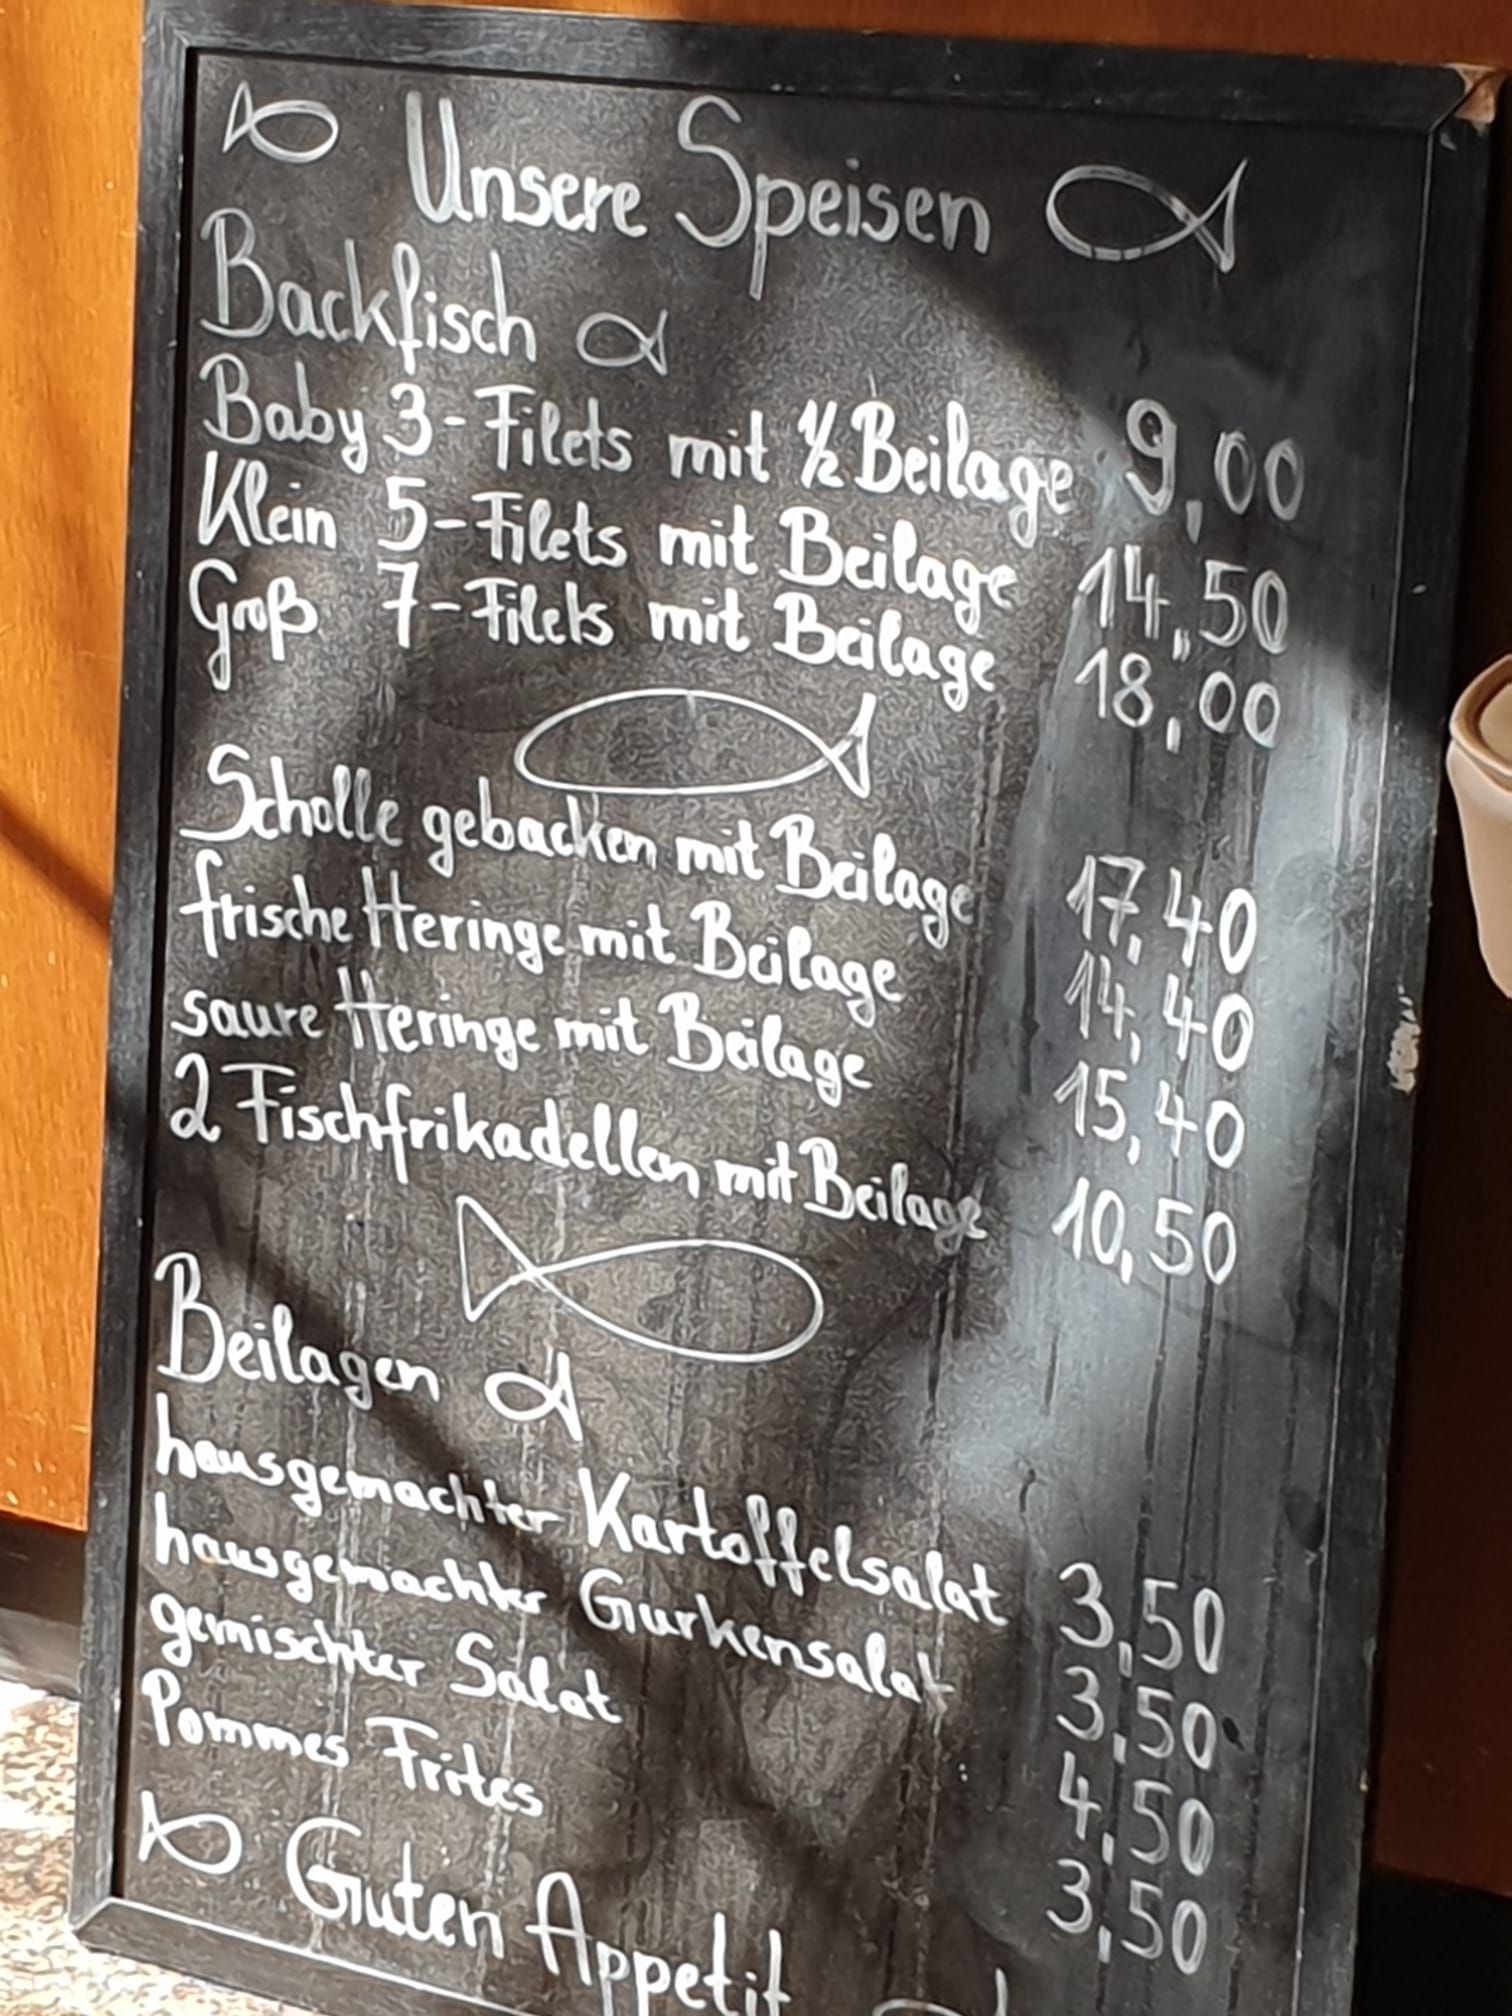 Unsere Speisen
Backfisch
Baby 3-Filets mit ½ Beilage 9,00
Klein 5-Filets mit Beilage 14,50
Groß 7-Filets mit Beilage 18,00
Scholle gebacken mit Beilage 17,40
frische Heringe mit Beilage 14,40
saure Heringe mit Beilage 15,40
2 Fischfrikadellen mit Beilage 10,50
Beilagen
hausgemachter Kartoffelsalat 3,50
hausgemachter Gurkensalat 3,50
gemischter Salat 4,50
Pommes Frites 3,50
Guten Appetit